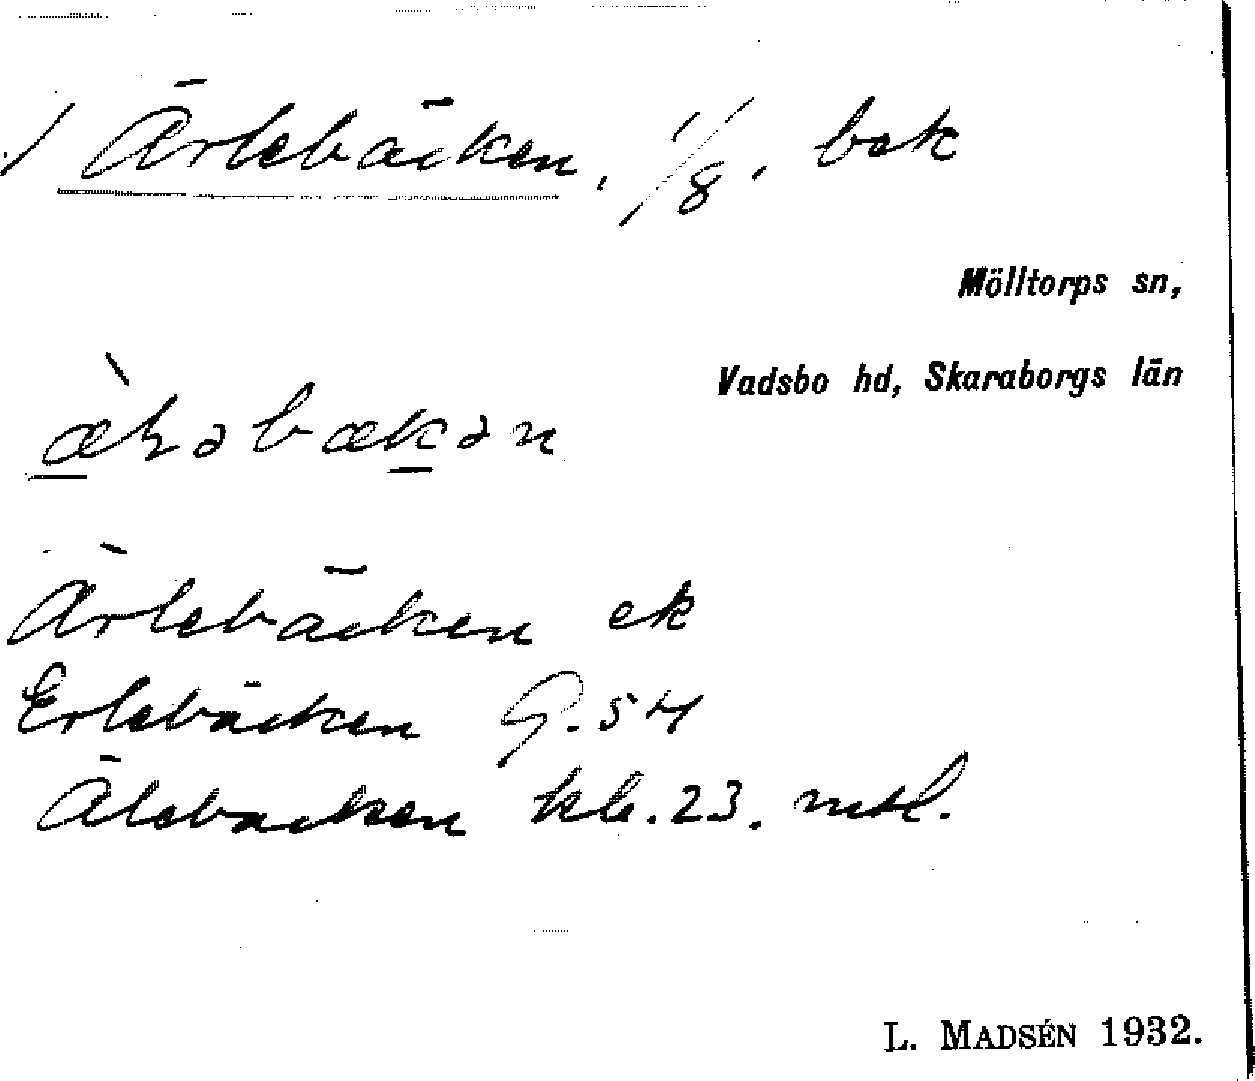 / Ärlebäcken, 1/8, bsk
Mölltorps sn,
Vadsbo hd, Skaraborgs län
Ärlebäcken ek
Erlebäcken G. 54
Älebäcken kb. 23. mtl.
L. MADSÉN 1932.